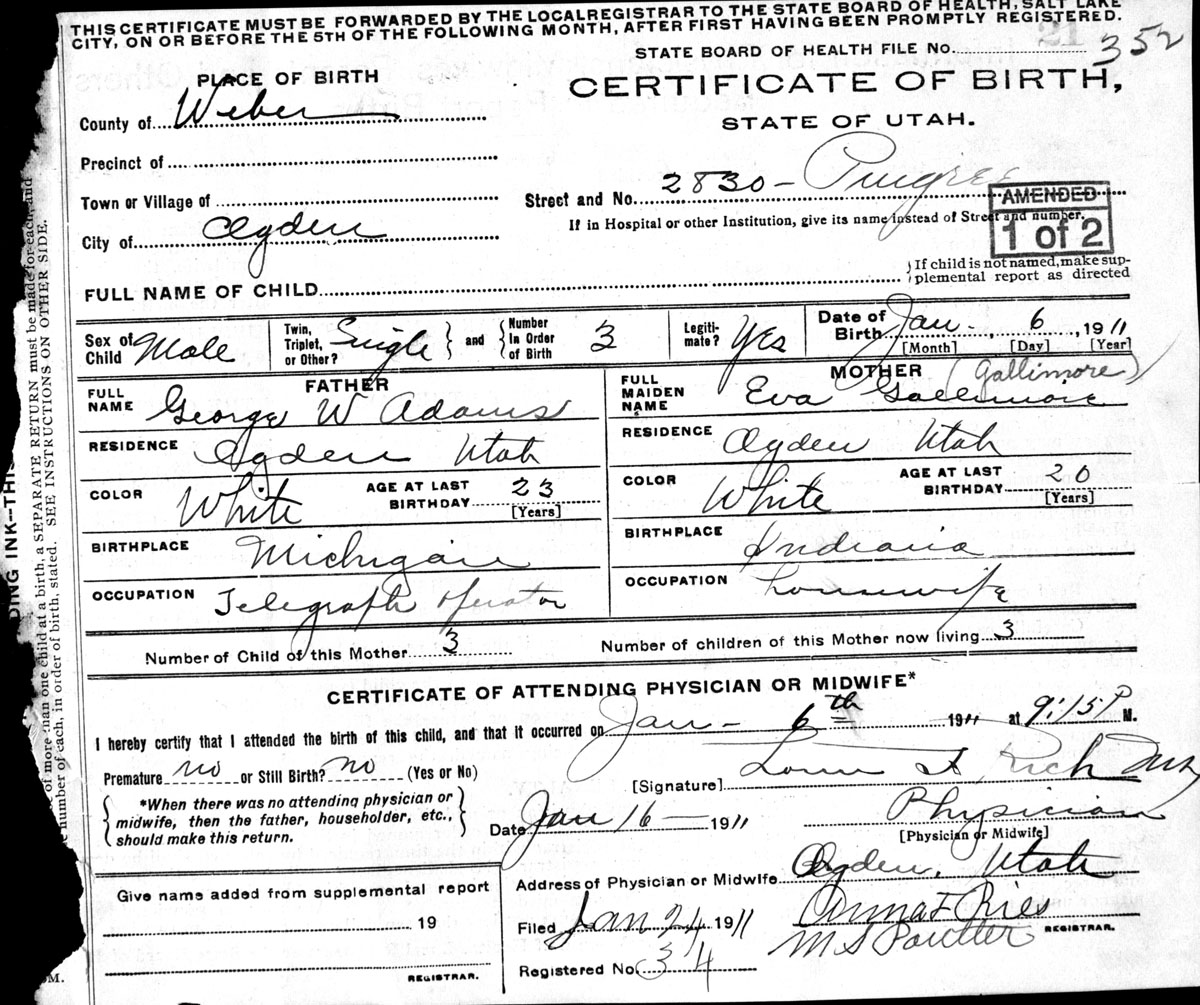 THIS CERTIFICATE MUST BE FORWARDED BY THE LOCAL REGISTRAR TO THE STATE BOARD OF HEALTH, SALT LAKE
CITY, ON OR BEFORE THE 5TH OF THE FOLLOWING MONTH, AFTER FIRST HAVING BEEN PROMPTLY REGISTERED.
STATE BOARD OF HEALTH FILE No. 352
PLACE OF BIRTH
CERTIFICATE OF BIRTH,
STATE OF UTAH.
County of Weber
Precinct of
Town or Village of
Street and No. 2830 - Pingree
AMENDED
1 of 2
If in Hospital or other Institution, give its name instead of Street and number.
City of Ogden
FULL NAME OF CHILD
If child is not named, make sup-
plemental report as directed
Sex of Child Male
Twin, Triplet, or Other? Single and Number In Order of Birth 3
Legiti-mate? Yes
Date of Birth Jan - 6, 1911
[Month] [Day] [Year]
FATHER
FULL NAME George W Adams
RESIDENCE Ogden Utah
COLOR White AGE AT LAST BIRTHDAY 23
[Years]
BIRTHPLACE Michigan
OCCUPATION Telegraph Operator
MOTHER (Gallimore)
FULL MAIDEN NAME Eva Gallimore
RESIDENCE Ogden Utah
COLOR White AGE AT LAST BIRTHDAY 20
[Years]
BIRTHPLACE Indiana
OCCUPATION Housewife
Number of Child of this Mother 3 Number of children of this Mother now living 3
CERTIFICATE OF ATTENDING PHYSICIAN OR MIDWIFE*
I hereby certify that I attended the birth of this child, and that it occurred on Jan - 6th 1911 at 9:15 P M.
Premature no or Still Birth? no (Yes or No)
[Signature] Rich
*When there was no attending physician or
midwife, then the father, householder, etc.,
should make this return.
Date Jan 16 - 1911
Physician
[Physician or Midwife]
Give name added from supplemental report
19
REGISTRAR.
Address of Physician or Midwife Ogden, Utah
Filed Jan 24 1911 Anna F Ries
REGISTRAR.
M S
Registered No. 34
DING INK—THIS
more than one child at a birth, a SEPARATE RETURN must be made for each, and
number of each, in order of birth, stated. SEE INSTRUCTIONS ON OTHER SIDE.
M.